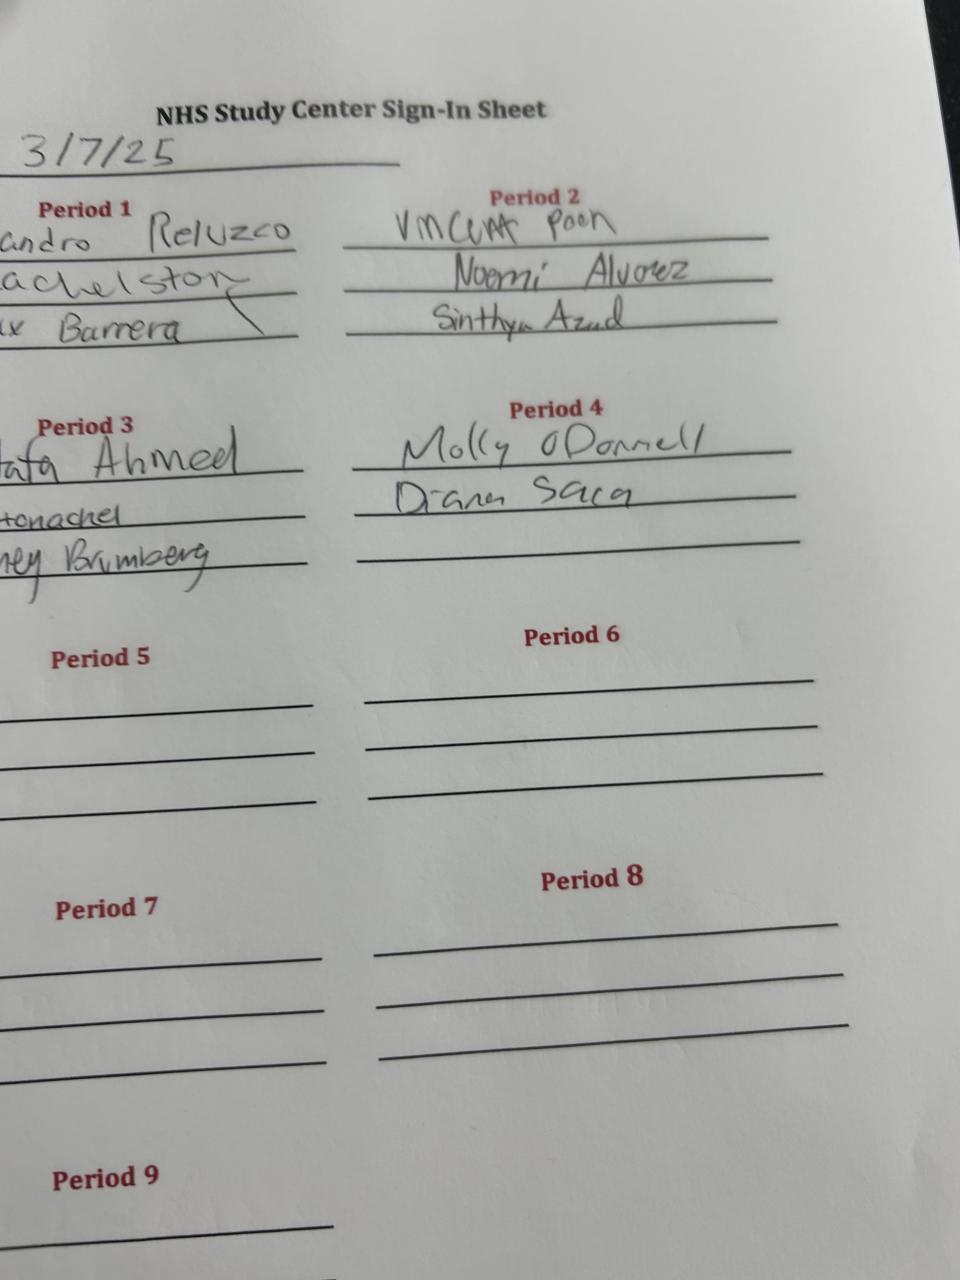 NHS Study Center Sign-In Sheet
3/7/25
Period 1
andro Reluzco
achelston
ix Barrera
Period 2
Vincent Poon
Noemi Alvarez
Sinthya Azad
Period 3
tafa Ahmed
ney Brumberg
Period 4
Molly ODonnell
Diana Saca
Period 5
Period 6
Period 7
Period 8
Period 9